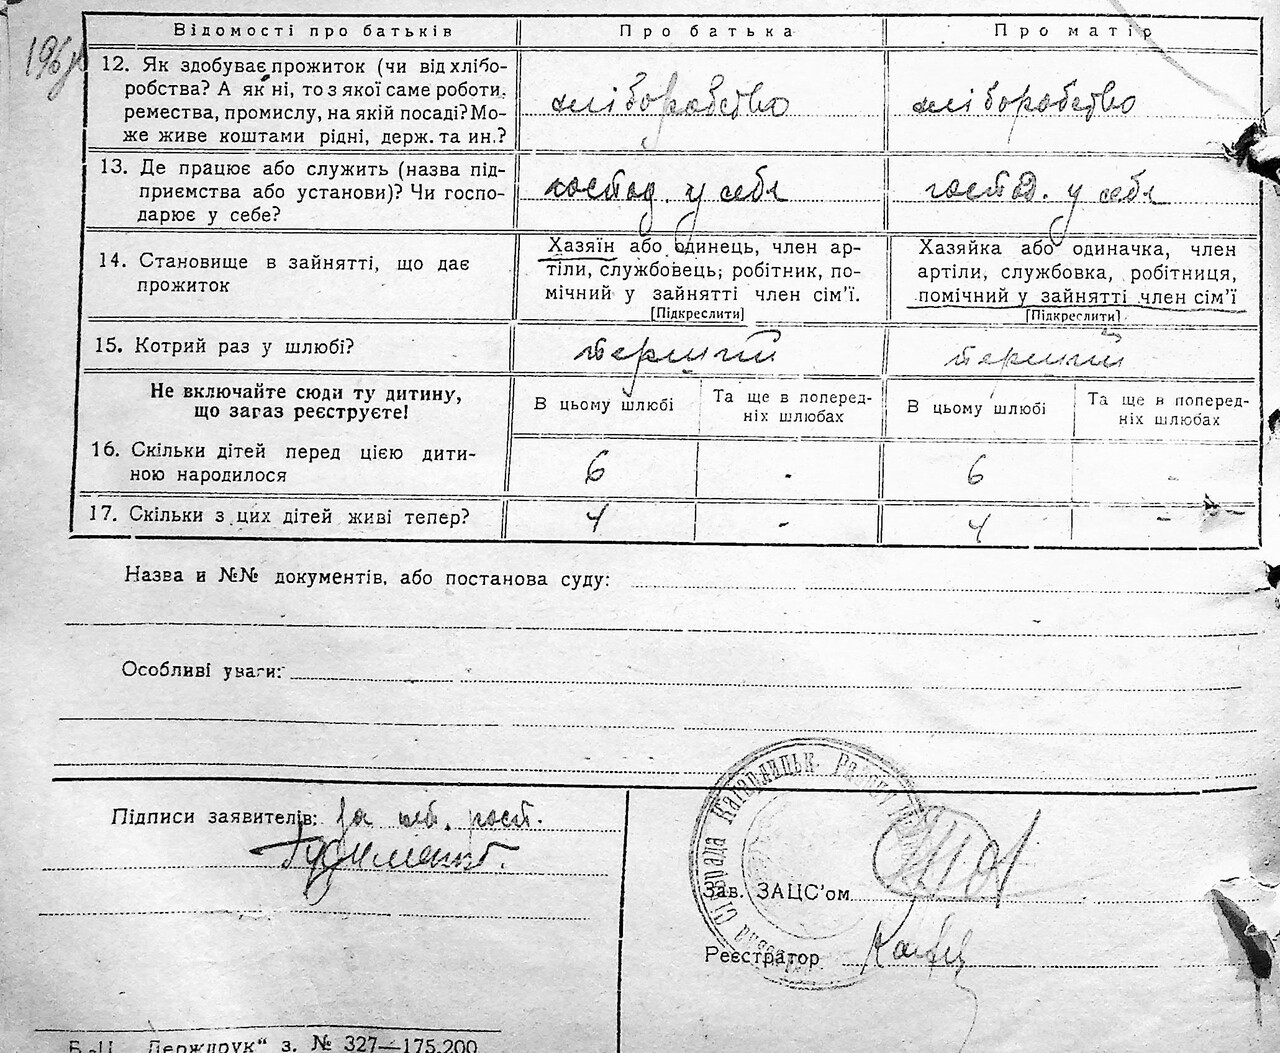 Відомості про батьків Про батька Про матір
196
12. Як здобуває прожиток (чи від хлібо-
робства? А як ні, то з якої саме роботи,
ремества, промислу, на якій посаді? Мо-
же живе коштами рідні, держ. та ин.?
хліборобство хліборобство
13. Де працює або служить (назва під-
приємства або установи)? Чи госпо-
дарює у себе?
господ. у себя господ. у себя
14. Становище в зайнятті, що дає
прожиток
Хазяїн або одинець, член ар-
тіли, службовець; робітник, по-
мічний у зайнятті член сім'ї.
[Підкреслити]
Хазяйка або одиначка, член
артіли, службовка, робітниця,
помічний у зайнятті член сім'ї
[Підкреслити]
15. Котрий раз у шлюбі? перший перший
Не включайте сюди ту дитину,
що загаз реєструєте!
В цьому шлюбі
Та ще в поперед-
ніх шлюбах
В цьому шлюбі
Та ще в поперед-
ніх шлюбах
16. Скільки дітей перед цією дити-
ною народилося
6 - 6 -
17. Скільки з цих дітей живі тепер? 4 - 4 -
Назва и №№ документів, або постанова суду:
Особливі уваги:
Підписи заявителів: за
Зав. ЗАЦС'ом
Реєстратор
Кагарлицьк.
Б.-Ц. „Держдрук“ з. № 327—175.200